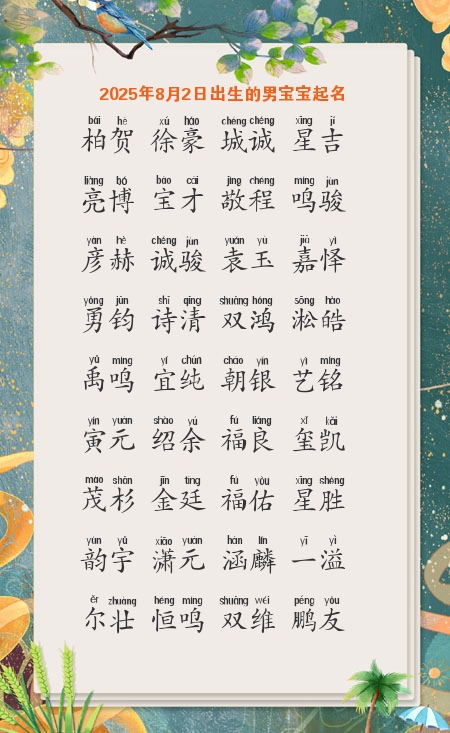 2025年8月2日出生的男宝宝起名
bǎi hè xú háo chéng chéng xīng jí
柏贺 徐豪 城诚 星吉
liàng bó bǎo cái jìng chéng míng jùn
亮博 宝才 敬程 鸣骏
yàn hè chéng jùn yuán yù jiā yì
彦赫 诚骏 袁玉 嘉怿
yǒng jūn shī qīng shuāng hóng sōng hào
勇钧 诗清 双鸿 淞皓
yǔ míng yí chún cháo yín yì míng
禹鸣 宜纯 朝银 艺铭
yín yuán shào yú fú liáng xǐ kǎi
寅元 绍余 福良 玺凯
mào shān jīn tíng fú yòu xīng shèng
茂杉 金廷 福佑 星胜
yùn yǔ xiāo yuán hán lín yī yì
韵宇 潇元 涵麟 一溢
ěr zhuàng héng míng shuāng wéi péng yǒu
尔壮 恒鸣 双维 鹏友